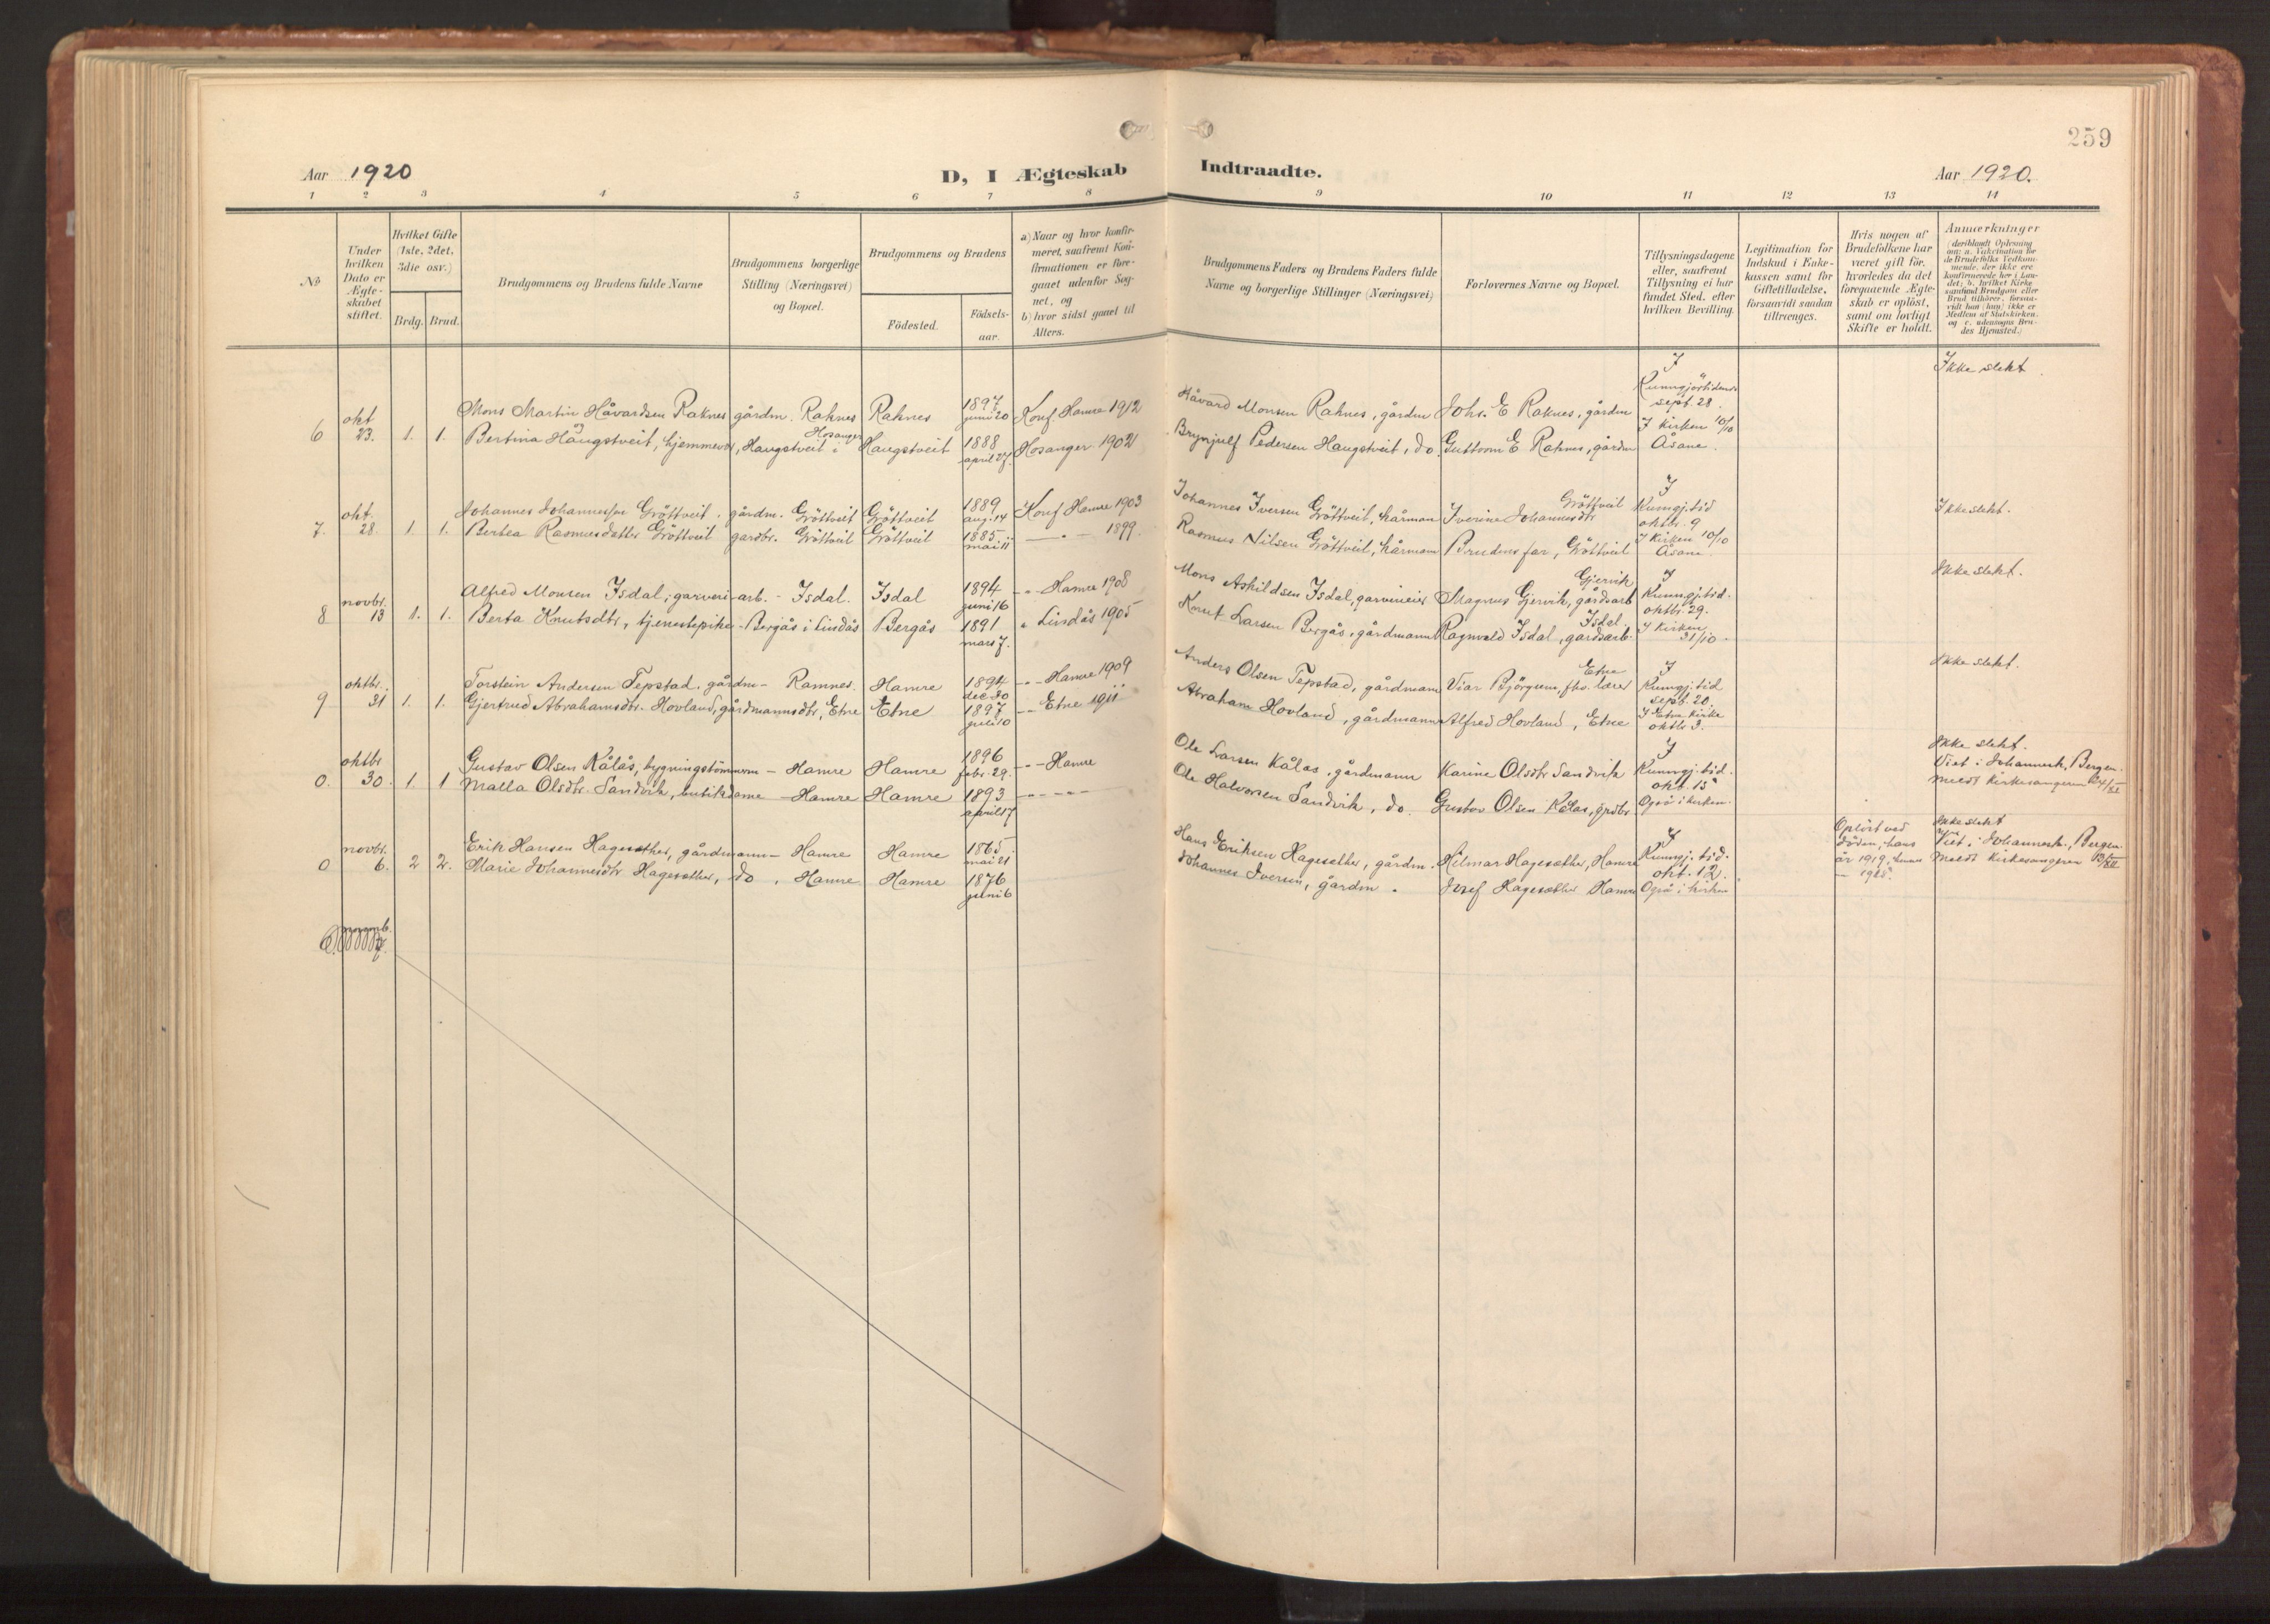 259
Aar 1920
D, I Ægteskab Indtraadte.
Aar 1920.
1 2 3 4 5 6 7 8 9 10 11 12 13 14
No
Under
hvilken
Dato er
Ægte-
skabet
stiftet.
Hvilket Gifte
(1ste, 2det,
3die osv.)
Brdg. Brud.
Brudgommens og Brudens fulde Navne
Brudgommens borgerlige
Stilling (Næringsvei)
og Bopæl.
Brudgommens og Brudens
Fødested.
Fødsels-
aar.
a) Naar og hvor konfir-
meret, saafremt Kon-
firmationen er fore-
gaaet udenfor Sog-
net, og
b) hvor sidst gaaet til
Alters.
Brudgommens Faders og Brudens Faders fulde
Navne og borgerlige Stillinger (Næringsvei)
Forlovernes Navne og Bopæl.
Tillysningsdagene
eller, saafremt
Tillysning ei har
fundet Sted, efter
hvilken Bevilling.
Legitimation for
Indskud i Enke-
kassen samt for
Giftetilladelse,
forsaavidt saadan
tiltrænges.
Hvis nogen af
Brudefolkene har
været gift før,
hvorledes da det
foregaaende Ægte-
skab er opløst,
samt om lovligt
Skifte er holdt.
Anmærkninger
(deriblandt Oplysning
om: a. Vakcination for
de Brudefolks Vedkom-
mende, der ikke ere
konfirmerede her i Lan-
det; b. hvilket Kirke-
samfund Brudgom eller
Brud tilhører, forsaa-
vidt han (hun) ikke er
Medlem af Statskirken,
og c. udensogns Bru-
des Hjemsted.)
6 okt 23. 1. 1.
Mons Martin Håvardsen Raknes gårdm. Raknes Raknes 1897 juni 20 Konf. Hamre 1912
Bertina Haugstveit, hjemmev., Haugstveit i Hosanger Haugstveit 1888 april 27. Hosanger 1902
Håvard Monsen Raknes, gårdm Johs. E Raknes, gårdm
Brynjulf Pedersen Haugstveit, do. Guttorm E Raknes, gårdm
I
Kunngjörtidende
sept. 28.
I kirken 10/10
Åsane.
Ikke slekt.
7. okt. 28. 1. 1.
Johannes Johannessen Gröttveit, gårdm. Gröttveit Gröttveit 1889 aug. 14 Konf Hamre 1903
Bertea Rasmusdatter Gröttveit gardbr. Gröttveit Gröttveit 1885 mai 11 — " — 1899.
Johannes Iversen Gröttveit, kårmann Iverine Johannesdtr Gröttveit
Rasmus Nilsen Gröttveit, kårmann Brudens far, Gröttveit
I
Kunngj.tid
oktbr. 9
I kirken 10/10
Åsane
Ikke slekt.
8 novbr. 13 1. 1.
Alfred Monsen Isdal, garveriarb. - Isdal. Isdal 1894 juni 16 - " - Hamre 1908
Berta Knutsdtr, tjenestepike - Bergås i Lindås Bergås 1891 mars 7. " Lindås 1905
Mons Askildsen Isdal, garverieier Magnus Gjervik, gårdsarb Gjervik
Knut Larsen Bergås, gårdmann Ragnvald Isdal, gardsarb. Isdal.
I
Kunngj.tid.
oktbr. 29.
I kirken
31/10.
Ikke slekt.
9 oktbr. 31 1. 1.
Torstein Andersen Tepstad, gårdm - Ramnes. Hamre 1894 dec 30 - " - Hamre 1909
Gjertrud Abrahamsdtr. Hovland, gårdmannsdtr, Etne Etne 1897 juli 10 - " - Etne 1911
Anders Olsen Tepstad, gårdmann Viar Björgum, fhv. lærer Etne
Abraham Hovland, gårdmann Alfred Hovland, Etne
I
Kunngj.tid
sept. 20.
I Etne kirke
oktbr 3.
Ikke slekt.
0. oktbr 30. 1 1
Gustav Olsen Kålås, bygningstömmerm - Hamre Hamre 1896 febr. 29. - " - Hamre
Malla Olsdtr. Sandvik, butikdame - Hamre Hamre 1893 april 17 - " - - -
Ole Larsen Kålås, gårdmann Karine Olsdtr Sandvik
Ole Halvorsen Sandvik, do. Gustav Olsen Kålås, grdbr.
I
Kunngj.tid.
okt. 15
Også i kirken.
Ikke slekt.
Viet i Johannesk, Bergen.
meldt kirkesangeren 24/XI
0 novbr. 6. 2 2.
Erik Hansen Hagesæther, gårdmann - Hamre Hamre 1865 mai 21
Marie Johannesdtr Hagesæther, do, Hamre Hamre 1876 juni 6
Hans Eriksen Hagesæther, gårdm. Hilmar Hagesæther, Hamre
Johannes Iversen, gårdm. Josef Hagesæther Hamre
I
Kunngj.tid.
okt. 12.
Også i kirken
Oplöst ved
döden, hans
år 1919, hennes
— 1918.
Ikke slekt
Viet i Johannesk., Bergen
meldt kirkesangeren